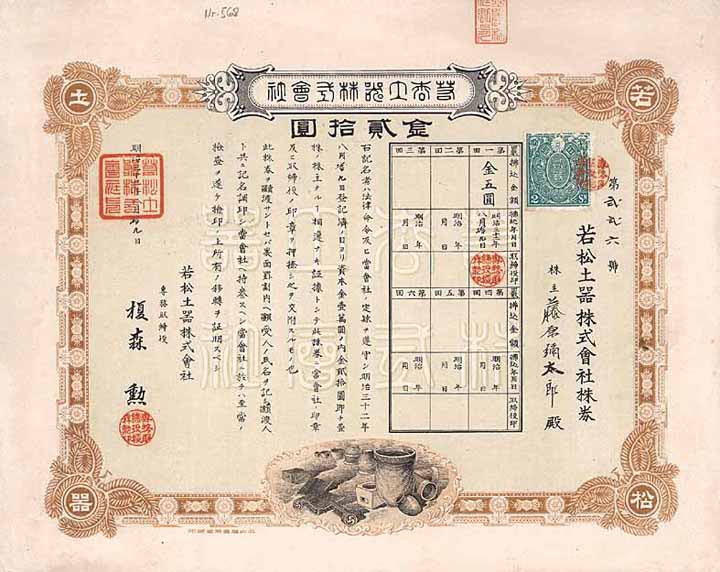 Nr. 568
若松土器株式會社
金貳拾圓
若
松
土
器
第貳貳六號
若松土器株式會社株券
株主 藤原彌太郎殿
2 Sn
第一回 第二回 第三回
金五圓
明治三十二年八月拾九日
明治 年 月 日
明治 年 月 日
第四回 第五回 第六回
明治 年 月 日
明治 年 月 日
明治 年 月 日
右記名者ハ法律命令及ヒ當會社ノ定款ヲ遵守シ明治三十二年
八月拾九日登記濟ノ日ヨリ資本金壹萬圓ノ內金貳拾圓即チ壹
株ノ株主タルコト相違ナキ証據トシテ此株券ニ當會社ノ印章
及ヒ取締役ノ印章ヲ押捺シ之ヲ交附スルモノ也
此株券ヲ賣渡サントセバ裏面罫割內ヘ讓受人ノ氏名ヲ記シ讓渡人
ト共ニ記名調印シ當會社ヘ持參スヘシ當會社ニ於テハ至當ノ
檢査ヲ遂ケ檢印ノ上所有ノ移轉ヲ証明スヘシ
若松土器株式會社
專務取締役
榎森勲